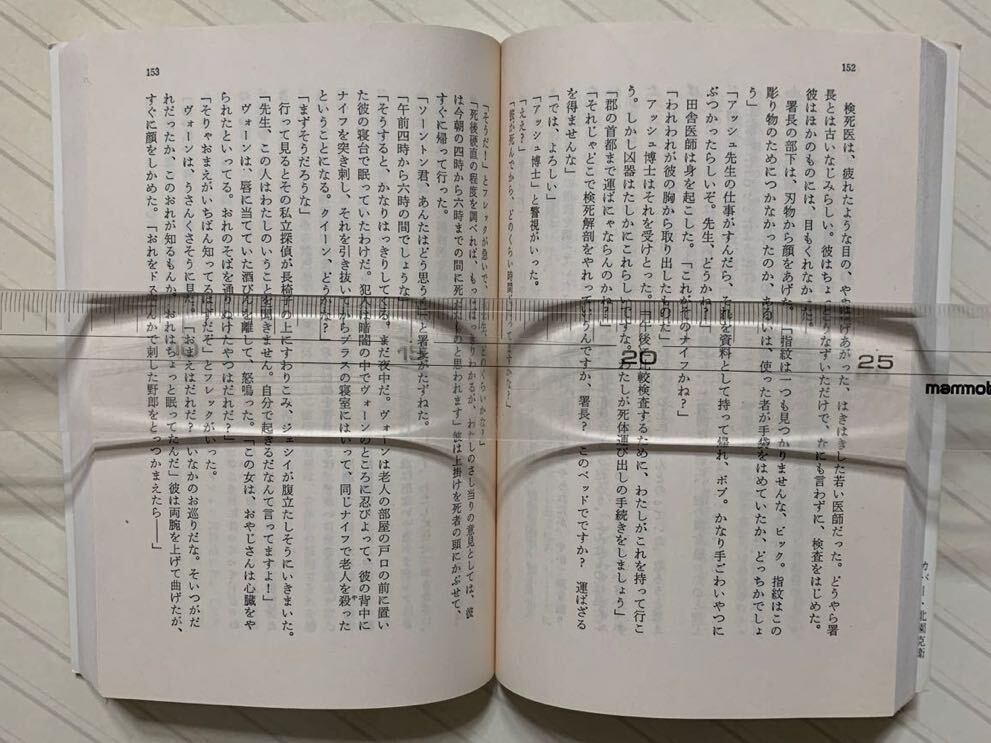 152
検死医は、疲れたような目の、やせ
あがった、はきはきした若い医師だった。どうやら署
長とは古いなじみらしい。彼はちょっとうなずいただけで、なにも言わずに、検査をはじめた。
彼はほかのものには、目もくれなかった。
署長の部下は、刃物から顔をあげた。「指紋は一つも見つかりませんな、ビック。指紋はこの
彫り物のためにつかなかったのか、あるいは、使った者が手袋をはめていたか、どっちかでしょ
う」
「アッシュ先生の仕事がすんだら、それを資料として持って帰れ、ボブ。かなり手ごわいやつに
ぶつかったらしいぞ。先生、どうかね?」
田舎医師は身を起こした。「これがそのナイフかね?」
「われわれが彼の胸から取り出したものだ」
アッシュ博士はそれを受けとった。「午後に比較検査するために、わたしがこれを持って行こ
う。しかし凶器はたしかにこれらしいですな。わたしが死体運び出しの手続きをしましょう」
「郡の首都まで運ばにゃならんのかね?」
「それじゃどこで検死解剖をやれっていうんですか、署長? このベッドでですか? 運ばざる
を得ませんな」
「では、よろしい」
「アッシュ博士」と警視がいった。
「ええ?」
「彼が死んでから、どのくらい時間が
153
「そうだ!」とフレックが急いで、
「死後硬直の程度を調べれば、もっとはっきりわかるが、わたしのさし当りの意見としては、彼
は今朝の四時から六時までの間に死んだものと思われます」彼は上掛けを死者の頭にかぶせて、
すぐに帰って行った。
「ソーントン君、あんたはどう思う?」と署長がたずねた。
「午前四時から六時の間でしょうな」
「そうすると、かなりはっきりしてくる。まだ夜中だ。ヴォーンは老人の部屋の戸口の前に置い
た彼の寝台で眠っていたわけだ。犯人は暗闇の中でヴォーンのところに忍びよって、彼の背中に
ナイフを突き刺し、それを引き抜いてからブラスの寝室にはいって、同じナイフで老人を殺った
ということになる。クイーン、どうかな?」
「まずそうだろうな」
行って見るとその私立探偵が長椅子の上にすわりこみ、ジェシイが腹立たしそうにいきまいた。
「先生、この人はわたしのいうことを聞きません。自分で起きるだなんて言ってますよ!」
ヴォーンは、唇に当てていた酒びんを離して、怒鳴った。「この女は、おやじさんは心臓をや
られたといってる。おれのそばを通りぬけたやつはだれだ?」
「そりゃおまえがいちばん知ってるはずだぞ」とフレックがいった。
ヴォーンは、うさんくさそうに見た。「おまえはだれだ? いなかのお巡りだな。そいつがだ
れだったか、このおれが知るもんか。おれはちょっと眠ってたんだ」彼は両腕を上げて曲げたが、
すぐに顔をしかめた。「おれをドス
なんかで刺した野郎をとっつかまえたら――」
20
25
カバー・北園克衛